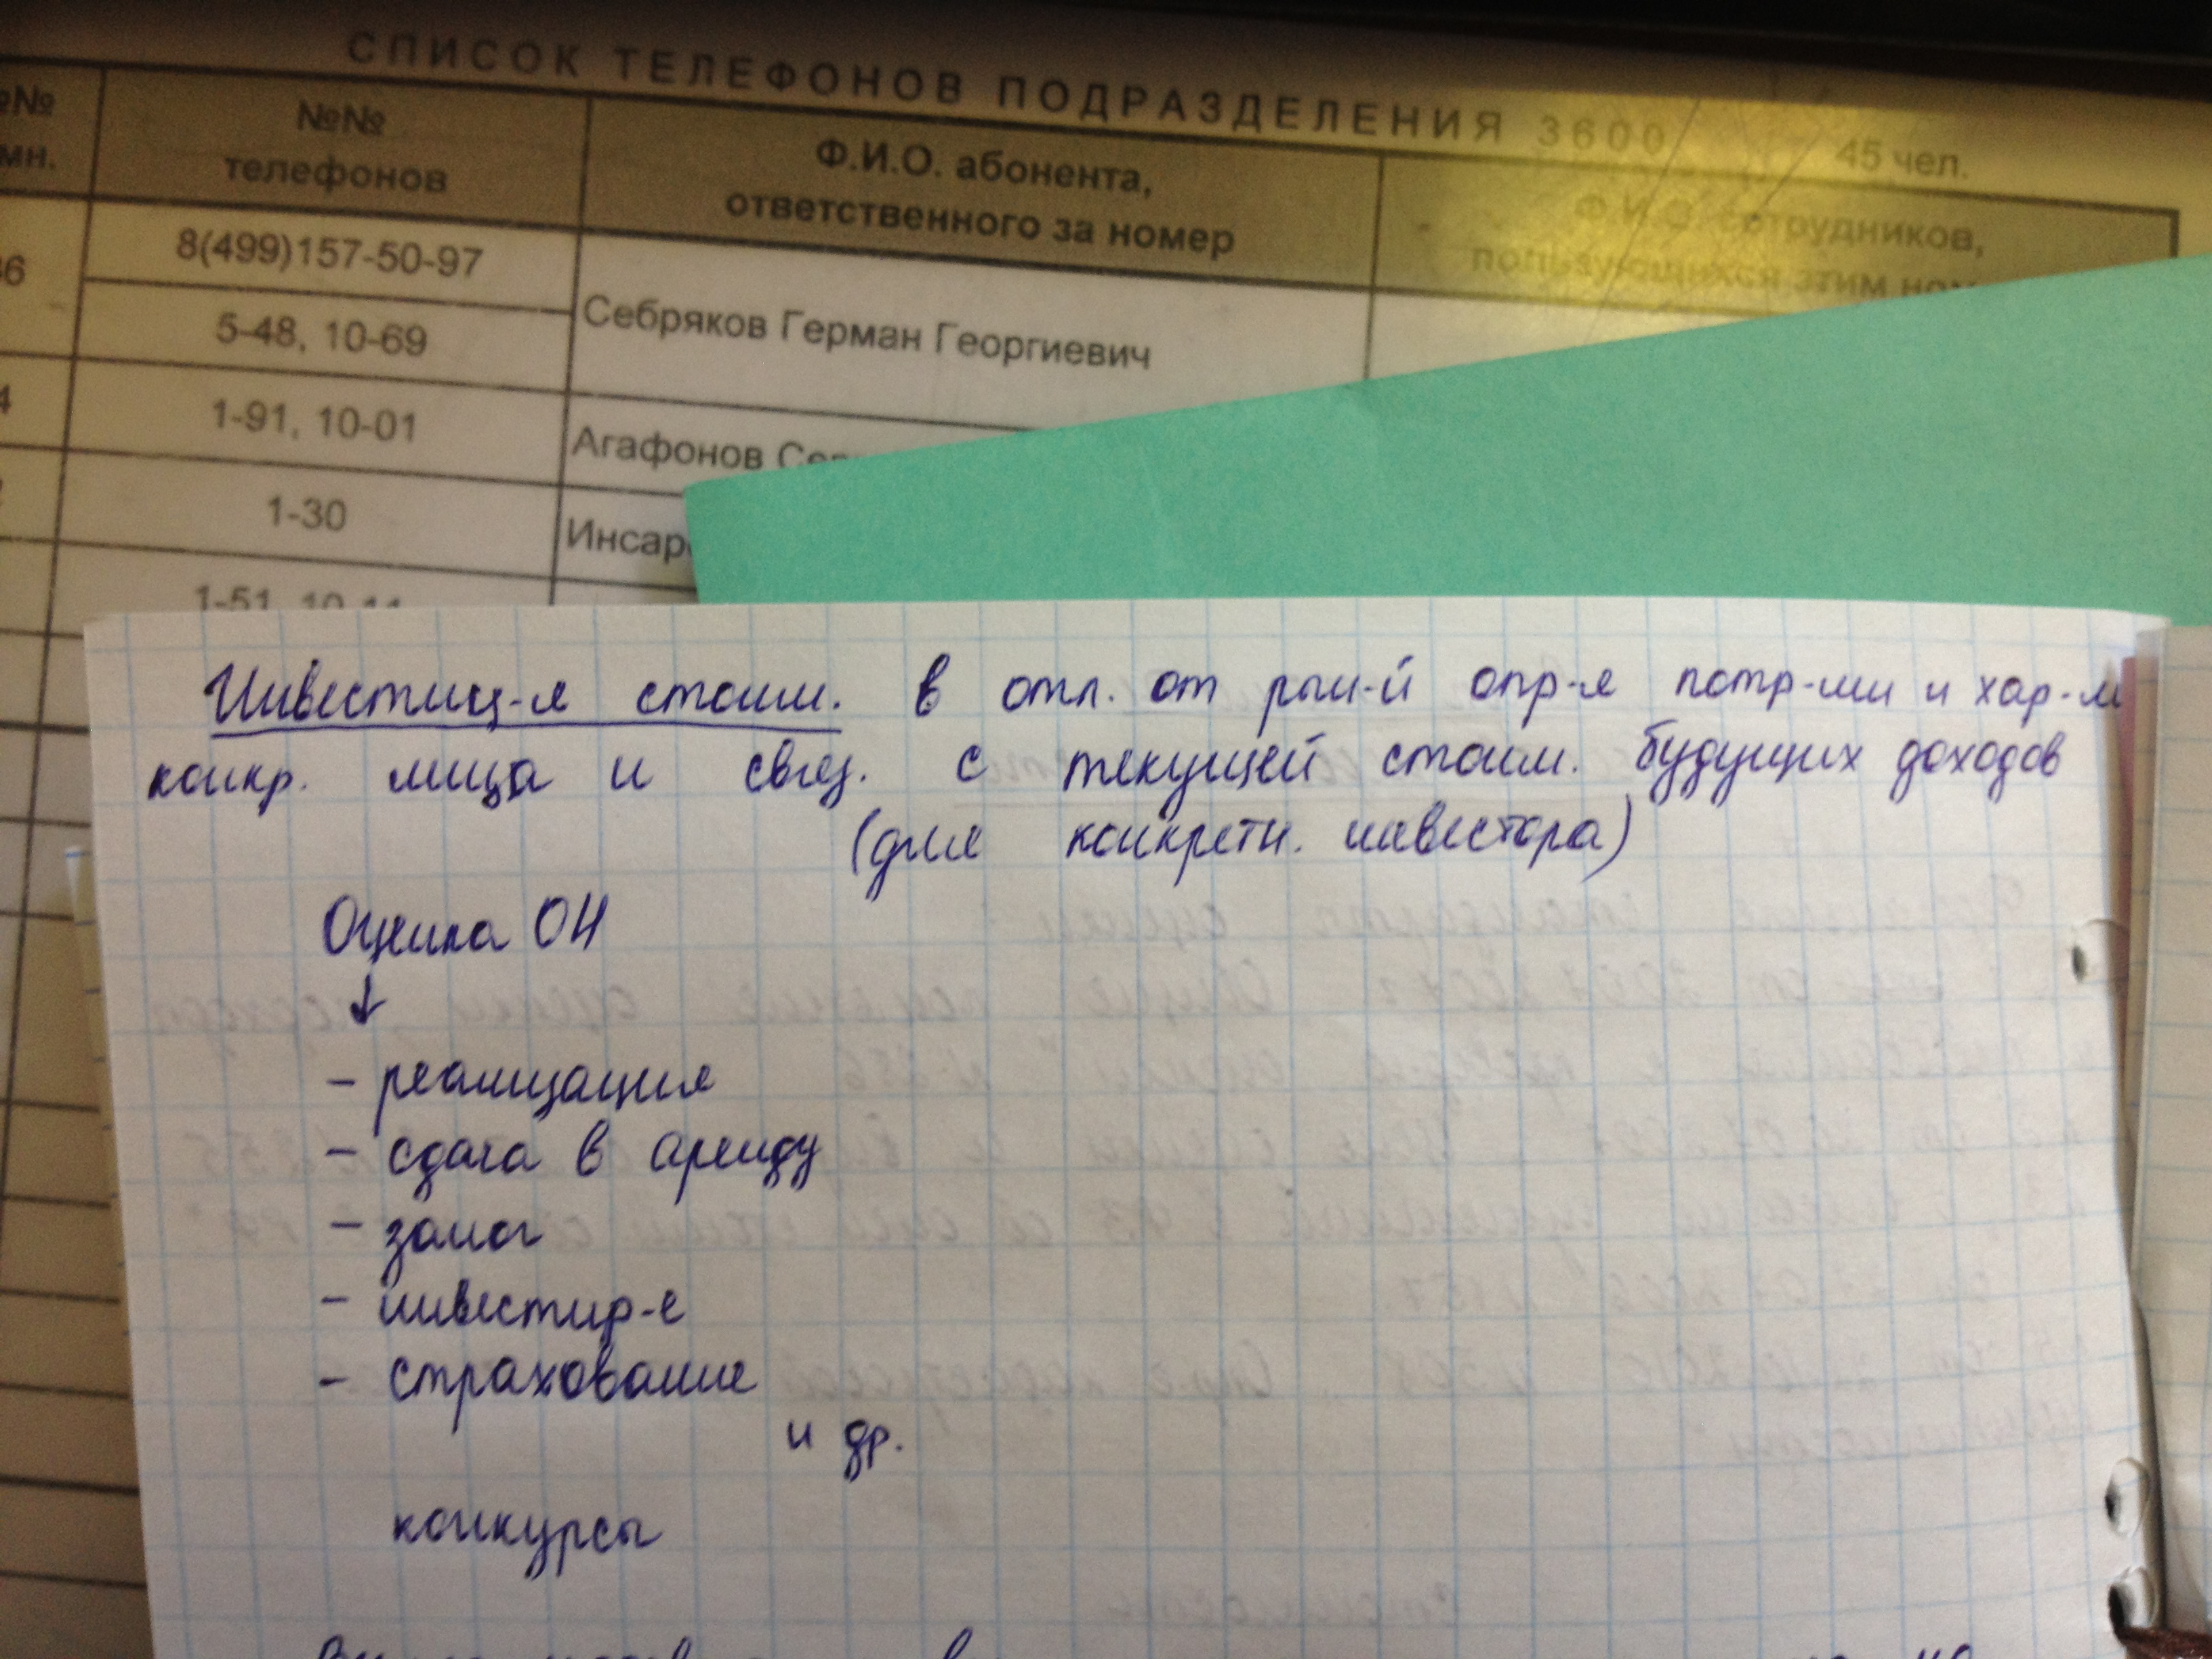 СПИСОК ТЕЛЕФОНОВ ПОДРАЗДЕЛЕНИЯ 3600
45 чел.
№№
мн.
№№
телефонов
Ф.И.О. абонента,
ответственного за номер
Ф.И.О. сотрудников,
пользующихся этим ном
8(499)157-50-97
5-48, 10-69
Себряков Герман Георгиевич
1-91, 10-01
Агафонов
1-30
Инсар
1-51, 10-11
Инвестиц-я стоим. в отл. от рын-й опр-я потр-ми и хар-м
конкр. лица и связ. с текущей стоим. будущих доходов
(для конкретн. инвестора)
Оценка ОН
↓
- реализация
- сдача в аренду
- залог
- инвестир-е
- страхование
и др.
конкурсы